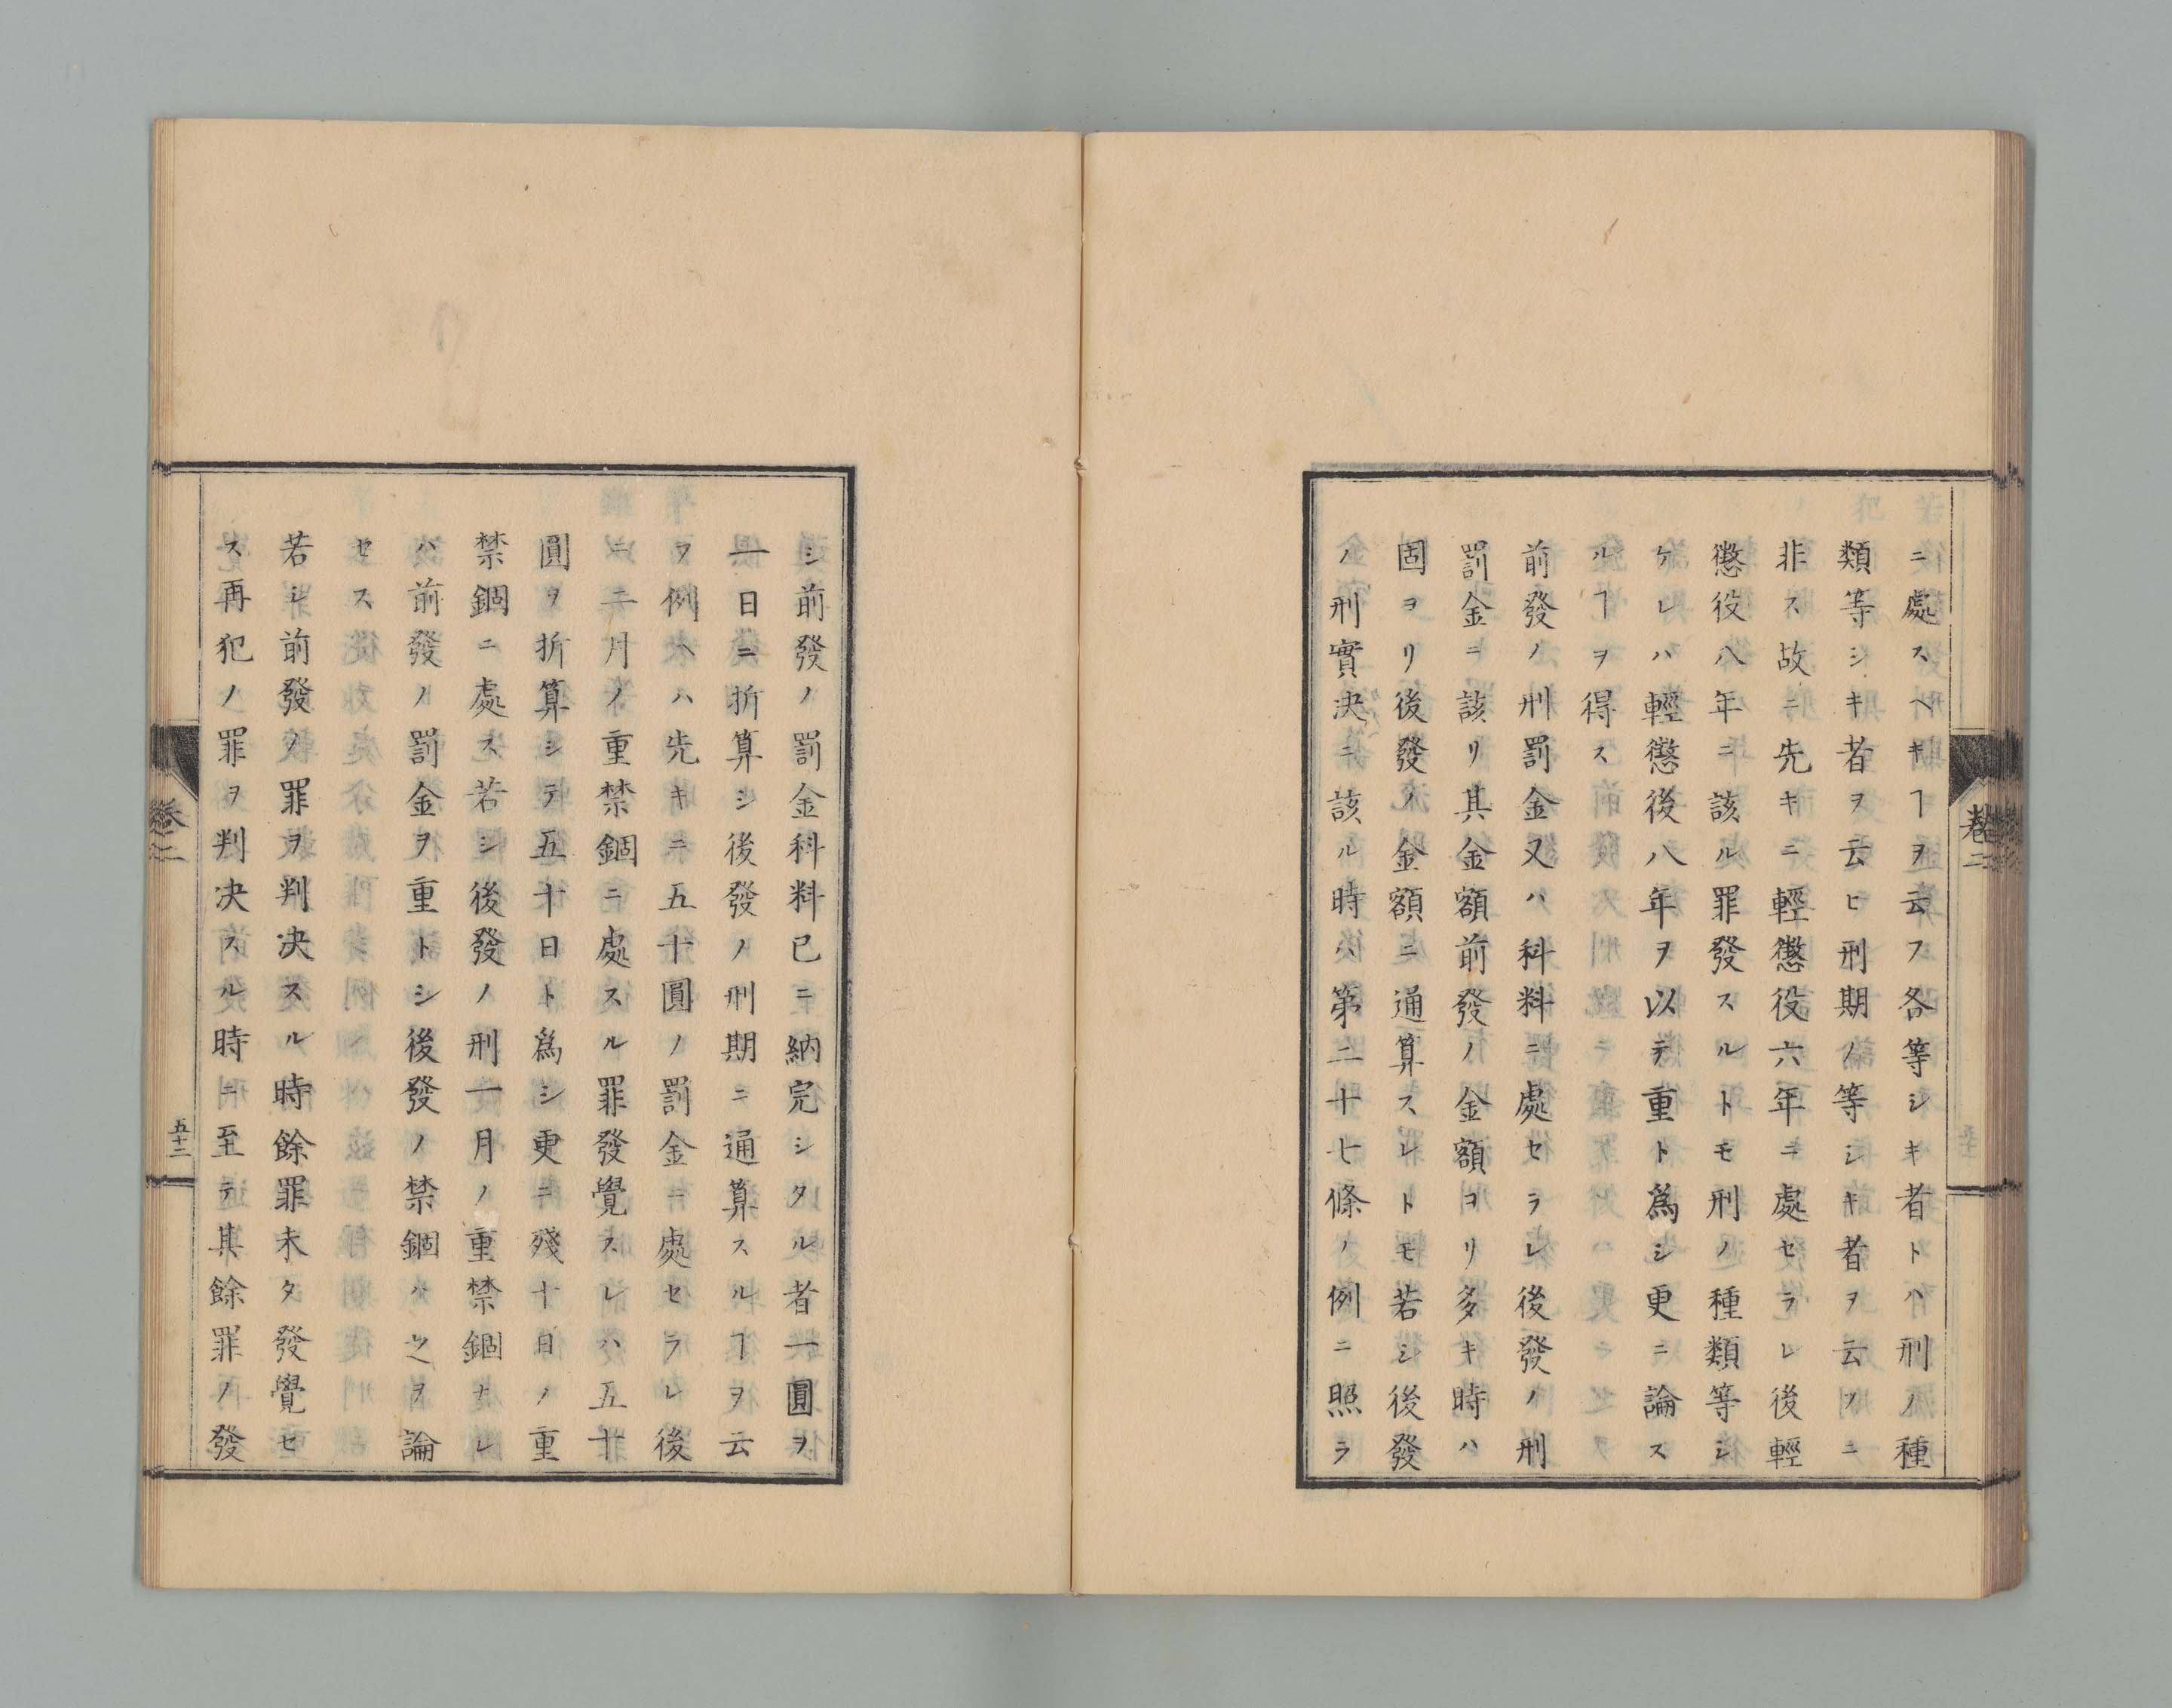 ニ處スヘキヿヲ云フ各等シキ者トハ刑ノ種
類等シキ者ヲ云ヒ刑期ノ等シキ者ヲ云フニ
非ス故ニ先キニ輕懲役六年ニ處セラレ後輕
懲役八年ニ該ル罪發スルトモ刑ノ種類等シ
ケレハ輕懲後八年ヲ以テ重ト爲シ更ニ論ス
ルヿヲ得ス
前發ノ刑罰金又ハ科料ニ處セラレ後發ノ刑
罰金ニ該リ其金額前發ノ金額ヨリ多キ時ハ
固ヨリ後發ノ金額ニ通算スレトモ若シ後發
ノ刑實決ニ該ル時ハ第二十七條ノ例ニ照ラ
卷二
シ前發ノ罰金科料已ニ納完シタル者一圓ヲ
一日ニ折算シ後發ノ刑期ニ通算スルヿヲ云
フ例ヘハ先キニ五十圓ノ罰金ニ處セラレ後
ニ二月ノ重禁錮ニ處スル罪發覺スレハ五十
圓ヲ折算シテ五十日ト爲シ更ニ殘十日ノ重
禁錮ニ處ス若シ後發ノ刑一月ノ重禁錮ナレ
ハ前發ノ罰金ヲ重トシ後發ノ禁錮ハ之ヲ論
セス
若シ前發ノ罪ヲ判决スル時餘罪未タ發覺セ
ス再犯ノ罪ヲ判决スル時ニ至テ其餘罪ノ發
卷之二
五十三